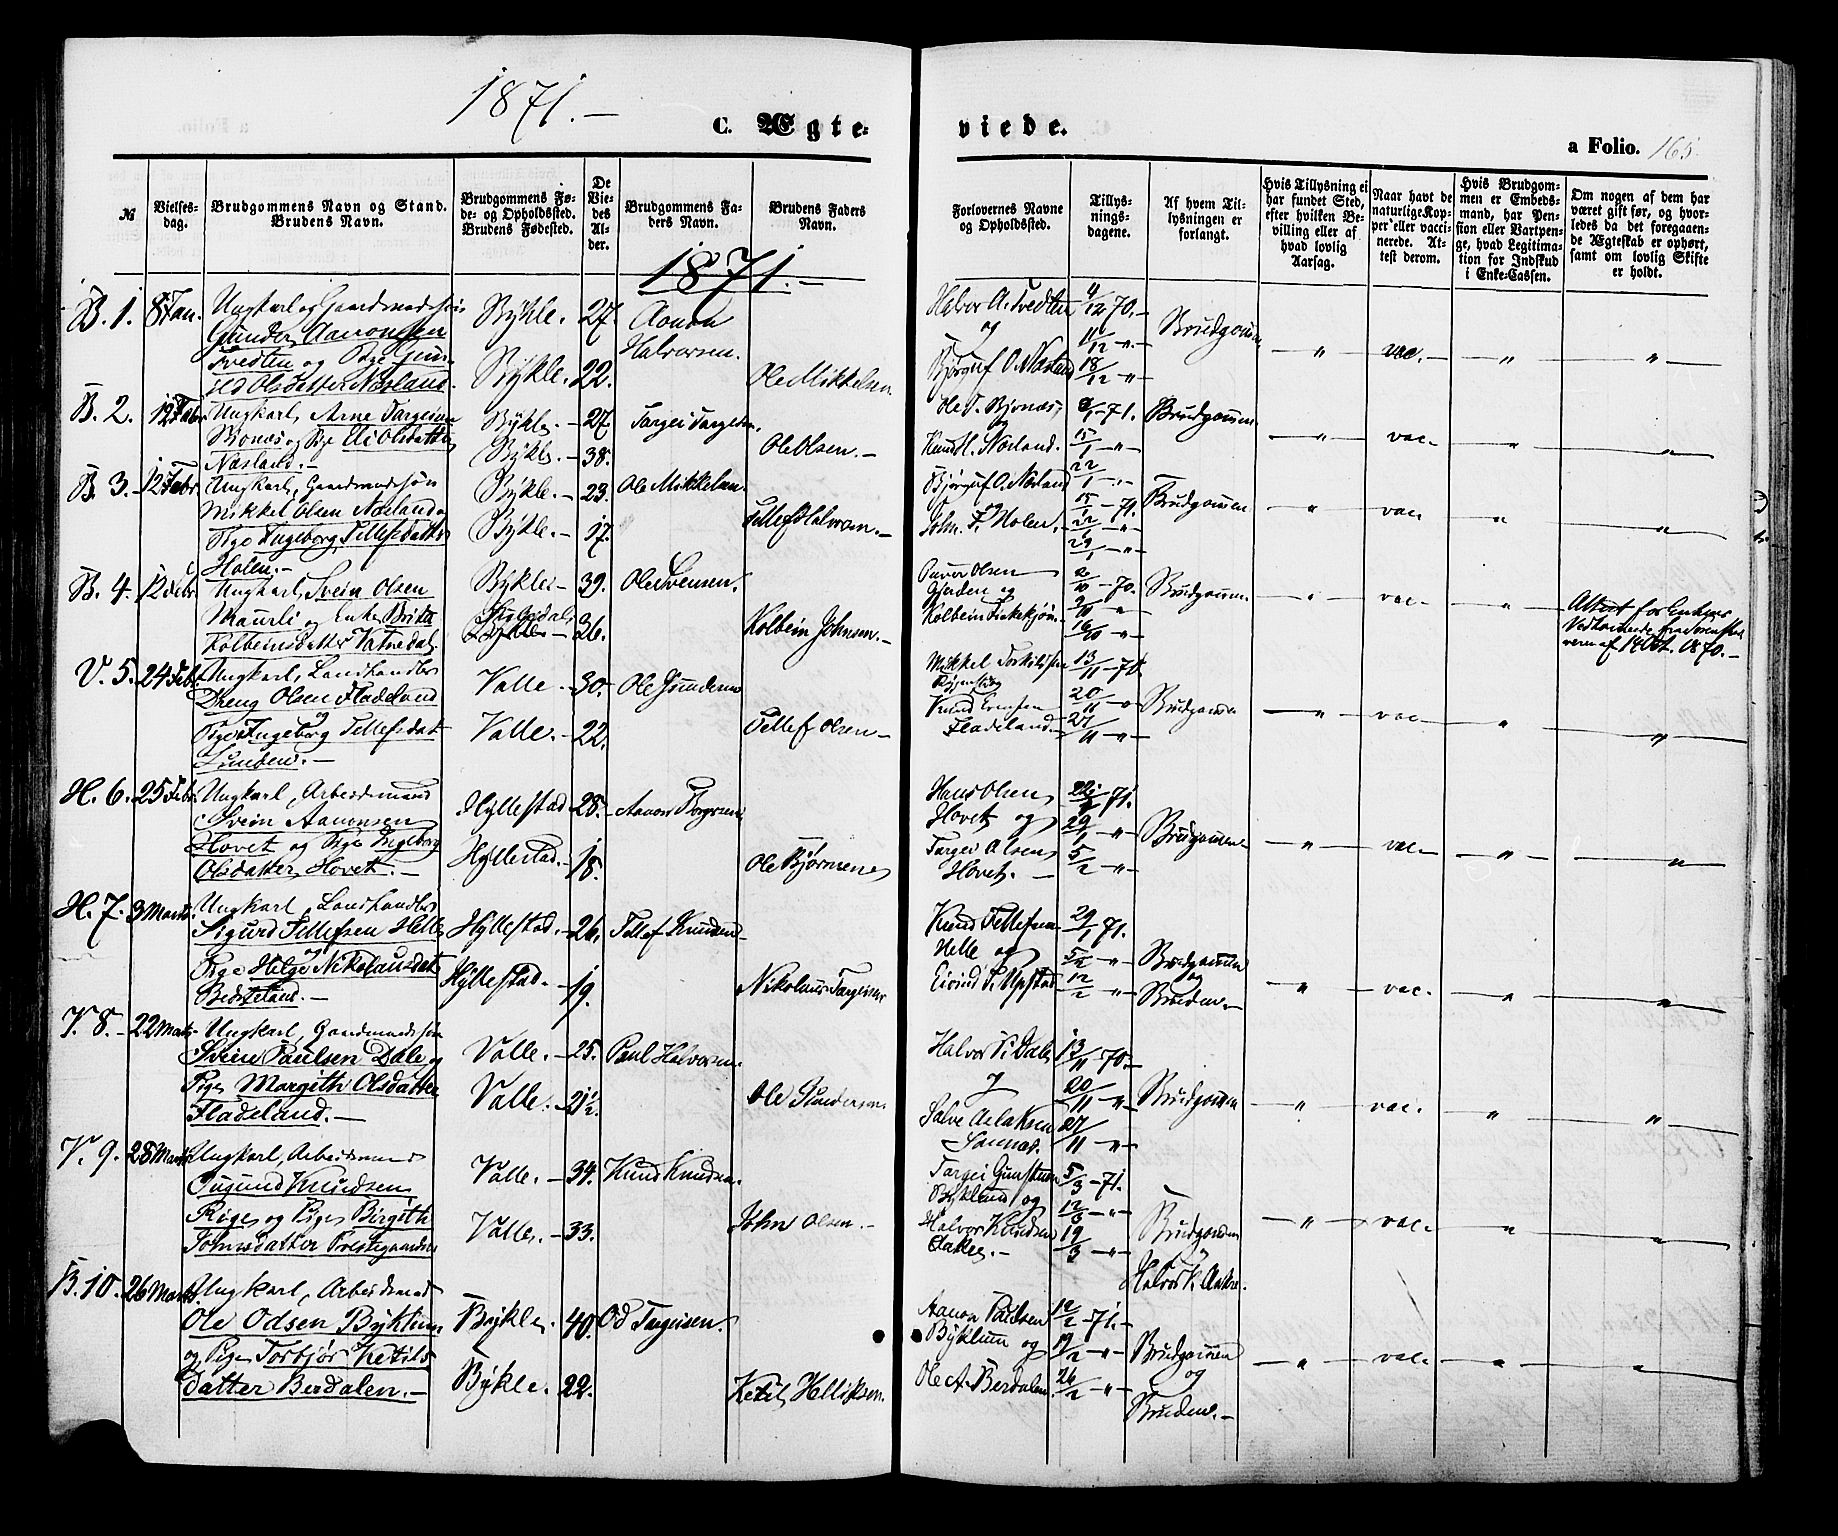 1871.-
C. Ægte-
viede.
a Folio. 165.
№
Vielses-
dag.
Brudgommens Navn og Stand.
Brudens Navn.
Brudgommens Fø-
de- og Opholdssted.
Brudens Fødested.
De
Vie-
des
Al-
der.
Brudgommens Fa-
ders Navn.
Brudens Faders
Navn.
Forlovernes Navne
og Opholdssted.
Tillys-
nings-
dagene.
Af hvem Til-
lysningen er
forlangt.
Hvis Tillysning ei
har fundet Sted,
efter hvilken Be-
villing eller af
hvad lovlig
Aarsag.
Naar havt de
naturlige Kop-
per eller vacci-
nerede. At-
test derom.
Hvis Brudgom-
men er Embeds-
mand, har Pen-
sion eller Vartpen-
ge, hvad Legitima-
tion for Indskud
i Enke-Cassen.
Om nogen af dem har
været gift før, og hvor-
ledes da det foregaaen-
de Ægteskab er ophørt,
samt om lovlig Skifte
er holdt.
1871.-
B. 1. 8 Jan. Ungkarl og Gaardmandssøn Bykle. 27. Aanon Halvor A. Tvedten 4/12 70.-
Gunder Aanonsen Halvorsen. og 11/12 "- Brudgommen
Tvedten og Pige Gun- Bykle. 22. Ole Mikkelsen Bjørguf O. Næsland 18/12 " - " - vac. - " - "
ild Olsdatter Næsland.
B. 2. 12 Febr. Ungkarl, Arne Targeisen Bykle - 27. Targei Targeisen. Ole T. Bjonæs, 8/1 - 71. Brudgommen
Bjonæs og Pige Eli Olsdatter Bykle - 38. Ole Olsen. - og Knud Næsland. 15/1 - " - " - vac - " - "
Næsland. - 22/1 - " -
B. 3. 12 Febr. Ungkarl, Gaardmandssøn Bykle. - 23. Ole Mikkelsen. Bjørguf O. Næsland 15/1 - 71. Brudgommen
Mikkel Olsen Næsland og Bykle. - 17. Tellef Halvorsen. - og 22/1 - " - " - vac. - " - "
Pige Ingeborg Tellefsdatter John T. Holen. 29/1 - " -
Holen. -
B. 4. 12 Febr. Ungkarl, Svein Olsen Bykle - 39. Ole Svensen. Olsen 2/10 - 70. Brudgommen.
Maurli og Enke Birte Bykle - 36. Kolbein Johnsen. - Gjerden og 9/10 " " - vac - " - Attest for Enkens
Kolbeinsdatter Vatnedal. Kolbein 16/10 " - Vedkommende fra
af 14 Oct. 1870. -
V. 5. 24 Febr. Ungkarl, Landhandler Valle. - 30. Ole Gundersen Mikkel Torkildsen 13/11 - 70.
Dreng Olsen Fladeland og 20/11 - " Brudgommen
og Knud
Pige Ingeborg Tellefsdat. Valle. - 22. Tellef Olsen - Fladeland. 27/11 " - " - vac - " - "
Lunden. -
H. 6. 25 Febr. Ungkarl, Arbeidsmand Hyllestad - 28. Aanon Hans Olsen 22/1 71.
Svein Aanonsen Hovet og 29/1 " - Brudgommen
Hovet og Pige Ingeborg Hyllestad. - 18. Ole Bjørnsen Targei Olsen 5/2 " - " - vac - " - "
Olsdatter Hovet. - Hovet. -
H. 7. 3 Marts. Ungkarl, Landhandler
Sigurd Tellefsen Helle Hyllestad. - 26. Tellef Knudsen - Knud Tellefsen 29/1 71.
og Helle og 5/2 " - Brudgommen
Pige Helge Nikolausdat. Hyllestad. - 19. Nikolaus Targeisen Eivind T. Upstad 12/2 " - og " - vac - " - "
Besteland. - Bruden. -
V. 8. - 22 Marts Ungkarl, Gaardmandssøn
Svein Paulsen Dale og Valle. - 25. Paul Halvorsen. Halvor P. Dale 13/11 - 70. -
Pige Margith Olsdatter Valle. - 21½. Ole Gundersen og 20/11 " - Brudgommen
Fladeland. - Salve Aslaksen 27/11 " - " - vac. - " - "
V. 9. 28 Marts Ungkarl, Arbeidsmand Valle. - 34. Knud Knudsen. Targei Gunstensen 5/3 - 71.
Øugund Knudsen Byklum og 12/3 - " -
Rige og Pige Birgith Valle. - 33. John Olsen. - Halvor Knudsen 19/3 - " - Brudgommen " - vac - " - "
Johnsdatter Prestegaarden Aakre. - og
Halvor K. Aakre.
B. 10. 26 Marts. Ungkarl, Arbeidsmand
Ole Odsen Byklum Bykle. 40. Od Targeisen. Aanon Paulsen 12/2 - 71. -
og Pige Torbjør Ketils- Byklum og 19/2 " - Brudgommen " - vac - " - "
datter Berdalen. - Bykle. 22. Ketil Helliksen. Ole A. Berdalen 26/2 " - og
Bruden. -